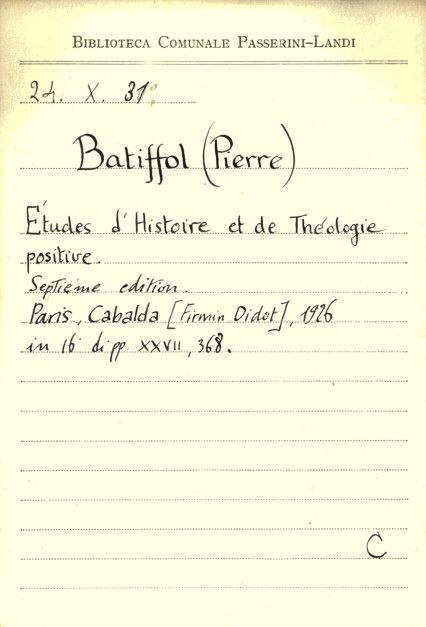 BIBLIOTECA COMUNALE PASSERINI-LANDI
24. X. 31.
Batiffol (Pierre)
Études d'Histoire et de Théologie
positive.
Septième edition.
Paris, Cabalda [Firmin Didot], 1926
in 16° di pp. XXVII, 368.
C